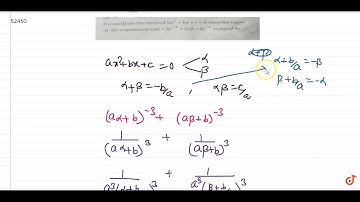 52450
If α and β are the roots of ax² + bx + c = 0, then the value
of the expression (aα + b)⁻³ + (aβ + b)⁻³ is equal to
ax²+bx+c=0 < α β
α+β=-b/a , αβ=c/a
α+β
α+b/a=-β
β+b/a=-α
(aα+b)⁻³ + (aβ+b)⁻³
1/(aα+b)³ + 1/(aβ+b)³